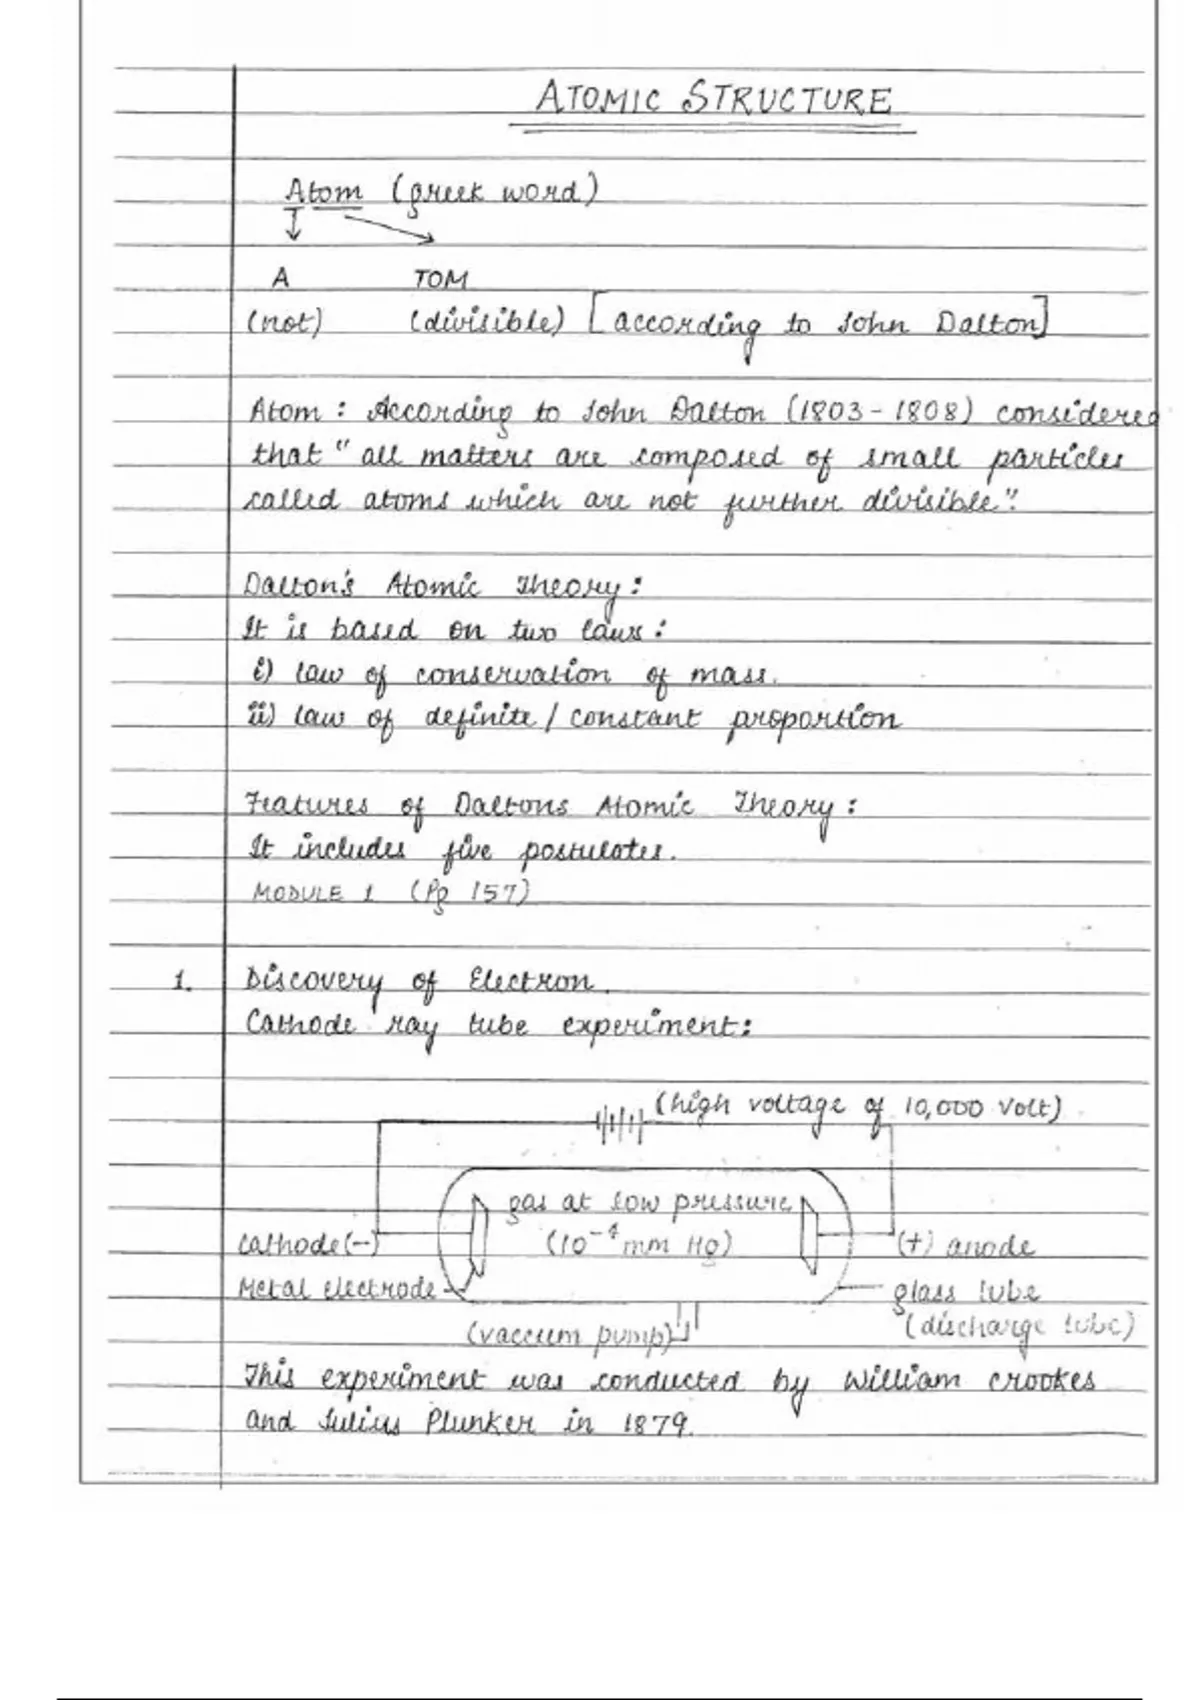 ATOMIC STRUCTURE
Atom (greek word)
A TOM
(not) (divisible) [according to John Dalton]
Atom : According to John Dalton (1803-1808) considered
that "all matters are composed of small particles
called atoms which are not further divisible".
Dalton's Atomic Theory :
It is based on two laws :
i) law of conservation of mass.
ii) law of definite / constant proportion
Features of Daltons Atomic Theory :
It includes five postulates.
MODULE 1 (Pg 157)
1. Discovery of Electron.
Cathode ray tube experiment:
(high voltage of 10,000 volt)
gas at low pressure
cathode(-) (10⁻⁴ mm Hg) (+) anode
Metal electrode glass tube
(vaccum pump) (discharge tube)
This experiment was conducted by William crookes
and Julius Plunker in 1879.